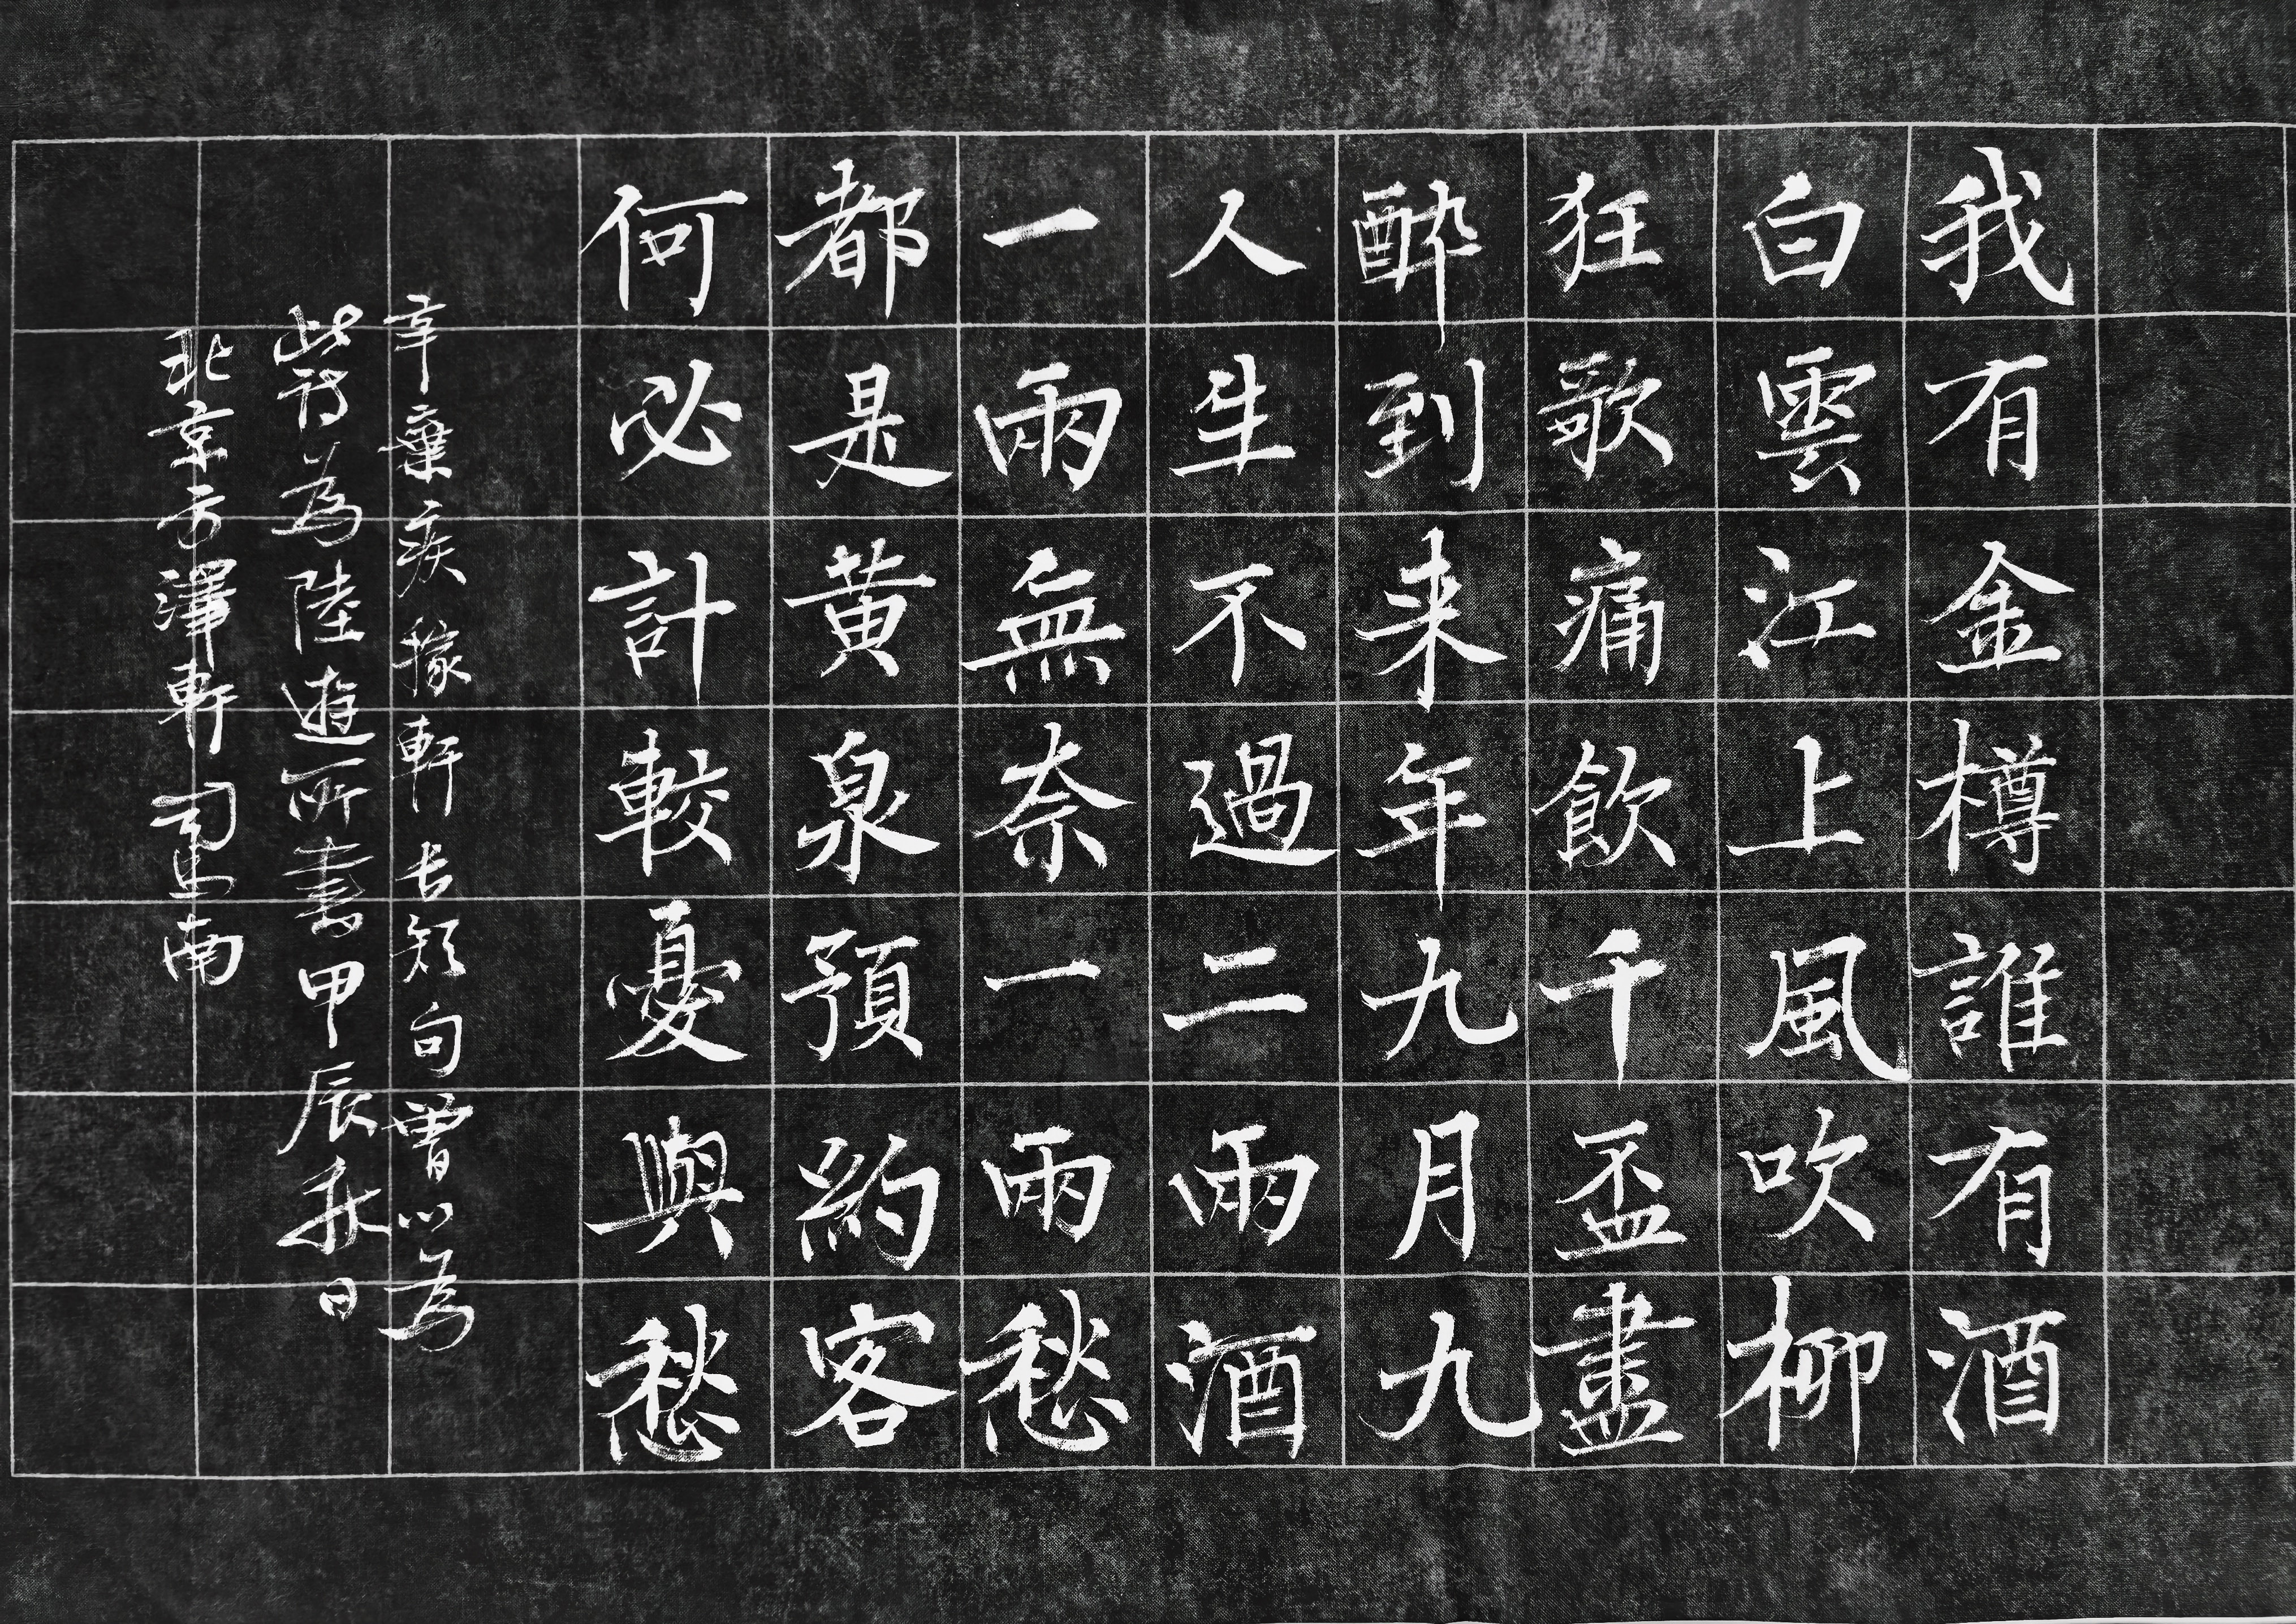 我有金樽誰有酒
白雲江上風吹柳
狂歌痛飲千盃盡
醉到来年九月九
人生不過二兩酒
一兩無奈一兩愁
都是黄泉預約客
何必計較憂與愁
辛棄疾稼軒長短句曽以為
此詩為陸遊所書甲辰秋日
北京方澤軒司馬南